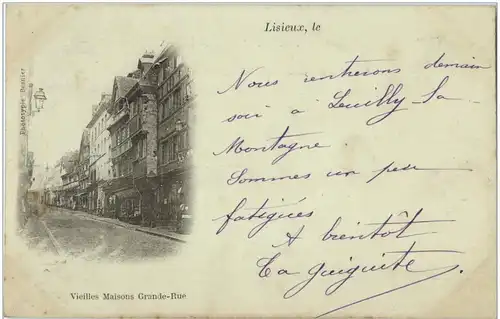 Lisieux, le
Nous rentrerons demain
soir à Neuilly la
Montagne
Sommes un peu
fatigués
A bientôt
Ta Guiguite
Phototypie Bernier
Vieilles Maisons Grande-Rue